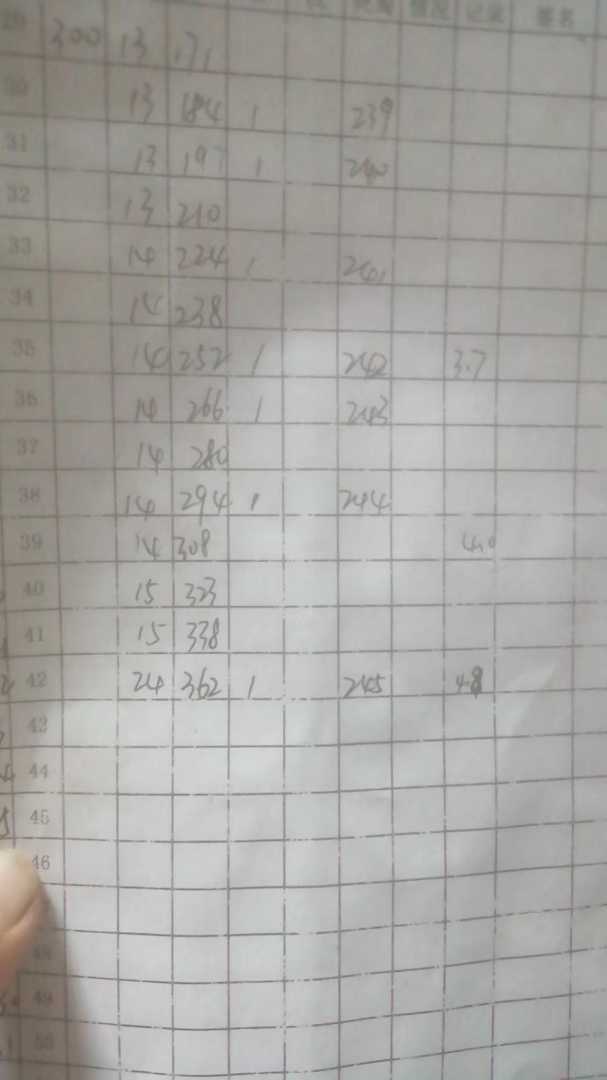 记录 签名
29 300 13 171
30 13 184 1 239
31 13 197 1 240
32 13 210
33 14 224 1 241
34 14 238
35 14 252 1 242 3.7
36 14 266 1 243
37 14 280
38 14 294 1 244
39 14 308 4.0
40 15 323
41 15 338
42 24 362 1 245 4.8
43
44
45
46
48
49
50